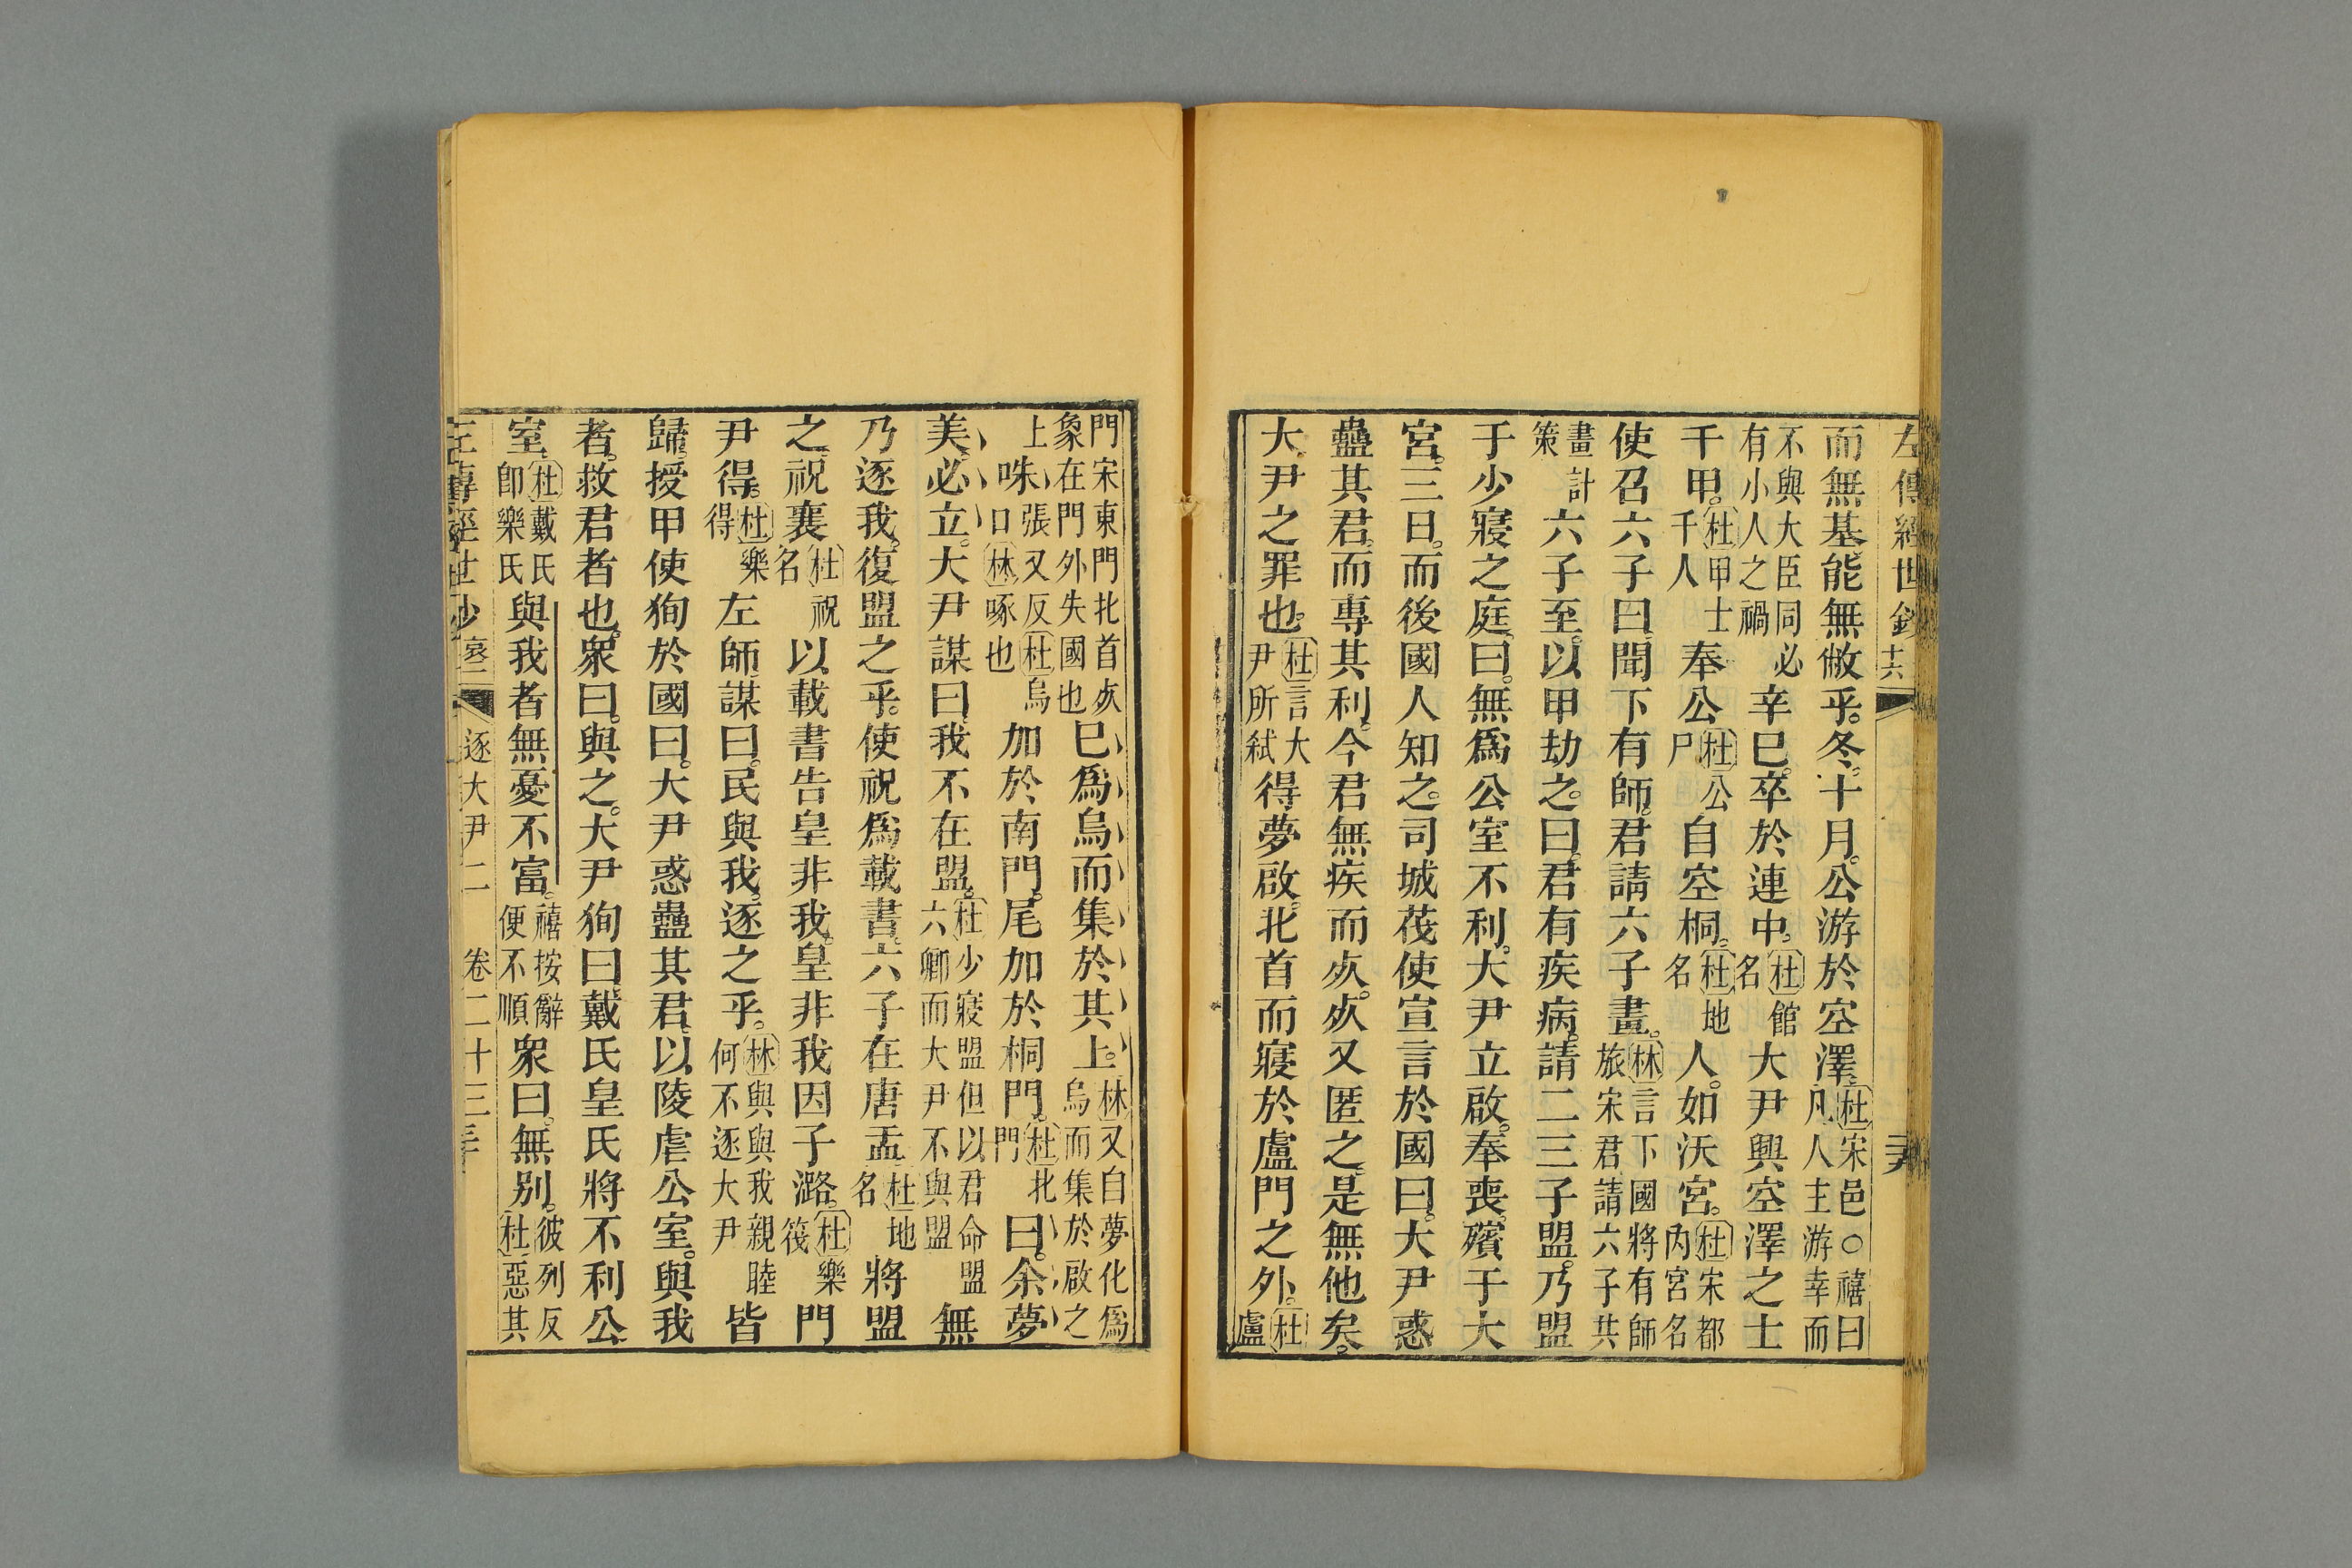 左傳經世鈔 十六
而無基能無敝乎。冬。十月。公游於空澤。杜宋邑〇禧曰凡人主游幸而
不與大臣同必有小人之禍辛巳。卒於連中。杜館名大尹興空澤之士
千甲。杜甲士千人奉公杜公尸自空桐。杜地名人。如沃宮。杜宋都內宮名
使召六子曰。聞下有師。君請六子畫。林言下國將有師旅宋君請六子共
畫計策六子至。以甲劫之。曰。君有疾病。請二三子盟。乃盟
于少寢之庭。曰。無為公室不利。大尹立啟。奉喪。殯于大
宮。三日。而後國人知之。司城茷使宣言於國曰。大尹惑
蠱其君。而專其利。今君無疾而死。死又匿之。是無他矣。
大尹之罪也。杜言大尹所弒得夢啟。北首而寢於盧門之外。杜盧
門宋東門北首死象在門外失國也巳為烏而集於其上。林又自夢化為烏而集於啟之
上咮張又反口林啄也杜烏加於南門。尾加於桐門。杜北門曰。余夢
美。必立。大尹謀曰。我不在盟。杜少寢盟但以君命盟六卿而大尹不與盟無
乃逐我。復盟之乎。使祝為載書。六子在唐盂杜地名將盟
之。祝襄杜祝名以載書告皇非我。皇非我因子潞。杜樂筏門
尹得。杜樂得左師謀曰。民與我。逐之乎。林與與我親睦何不逐大尹皆
歸。授甲使狥於國曰。大尹惑蠱其君。以陵虐公室。與我
者。救君者也。衆曰。與之。大尹狥曰。戴氏皇氏將不利公
室。杜戴氏卽樂氏與我者無憂不富。禧按辭便不順衆曰。無別。彼列反杜惡其
左傳經世鈔 哀二 逐大尹二 卷二十三